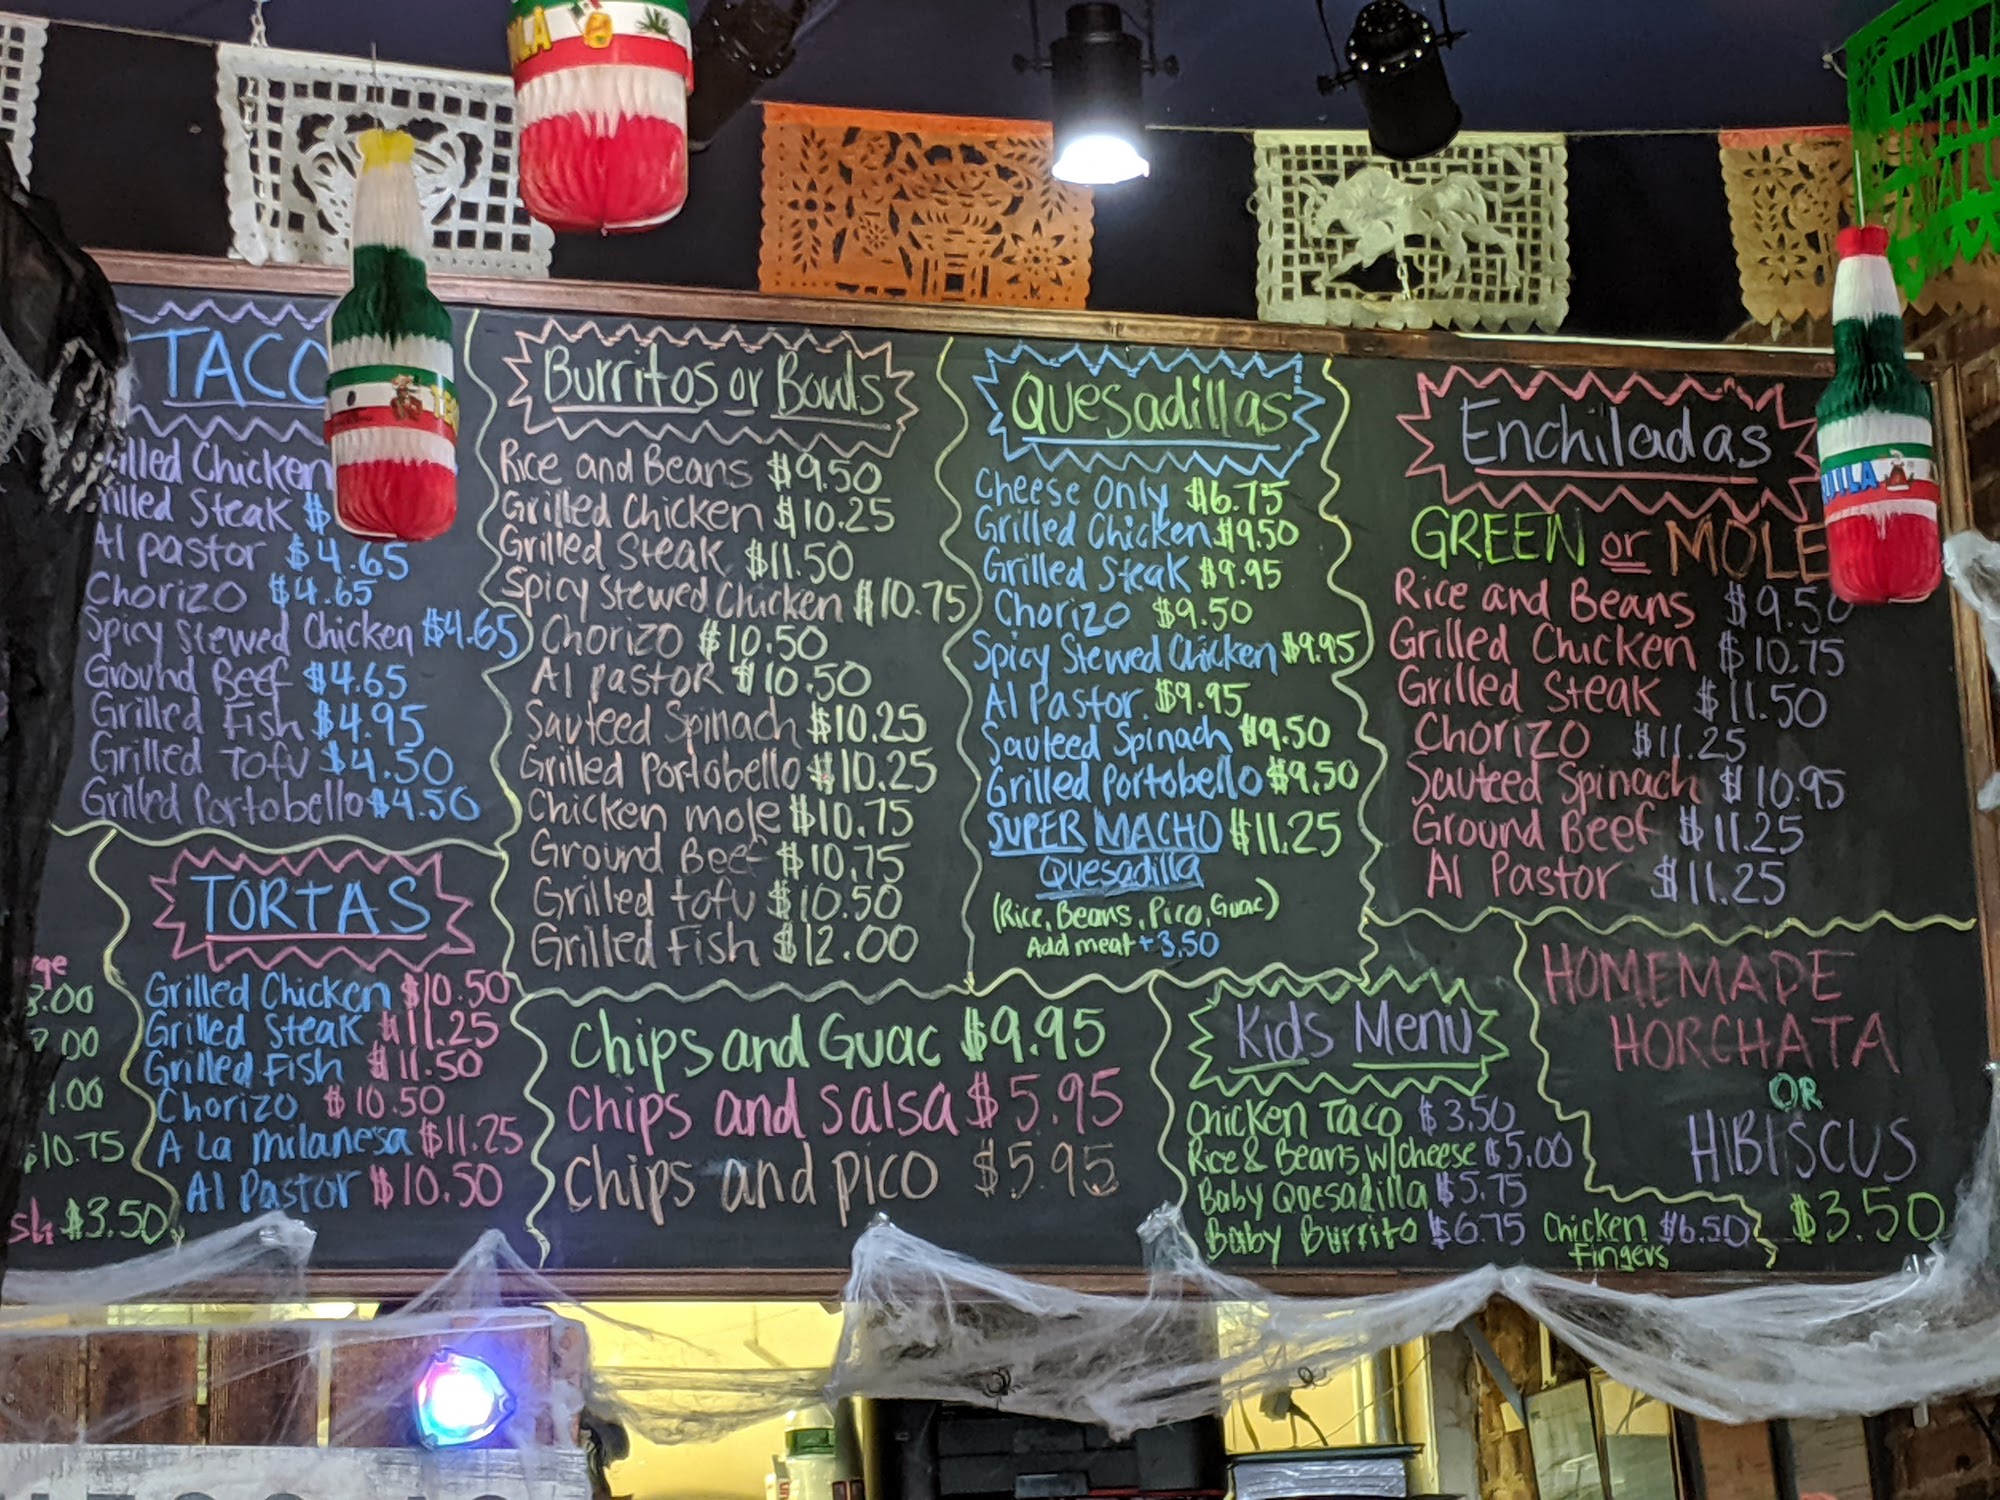 TACO
Grilled Chicken
Grilled Steak $
Al pastor $4.65
Chorizo $4.65
Spicy Stewed Chicken $4.65
Ground Beef $4.65
Grilled Fish $4.95
Grilled Tofu $4.50
Grilled Portobello $4.50
TORTAS
Grilled Chicken $10.50
Grilled Steak $11.25
Grilled Fish $11.50
Chorizo $10.50
A La Milanesa $11.25
Al Pastor $10.50
$10.75
$3.50
Burritos or Bowls
Rice and Beans $9.50
Grilled Chicken $10.25
Grilled Steak $11.50
Spicy Stewed Chicken $10.75
Chorizo $10.50
Al pastor $10.50
Sauteed Spinach $10.25
Grilled Portobello $10.25
Chicken mole $10.75
Ground Beef $10.75
Grilled tofu $10.50
Grilled Fish $12.00
Chips and Guac $9.95
Chips and Salsa $5.95
Chips and pico $5.95
Quesadillas
Cheese Only $6.75
Grilled Chicken $9.50
Grilled Steak $9.95
Chorizo $9.50
Spicy Stewed Chicken $9.95
Al Pastor $9.95
Sauteed Spinach $9.50
Grilled Portobello $9.50
SUPER MACHO $11.25
Quesadilla
(Rice, Beans, Pico, Guac)
Add meat + 3.50
Kids Menu
Chicken Taco $3.50
Rice & Beans w/cheese $5.00
Baby Quesadilla $5.75
Baby Burrito $6.75
Chicken $6.50
Fingers
Enchiladas
GREEN or MOLE
Rice and Beans $9.50
Grilled Chicken $10.75
Grilled Steak $11.50
Chorizo $11.25
Sauteed Spinach $10.95
Ground Beef $11.25
Al Pastor $11.25
HOMEMADE
HORCHATA
OR
HIBISCUS
$3.50
VIVA LA